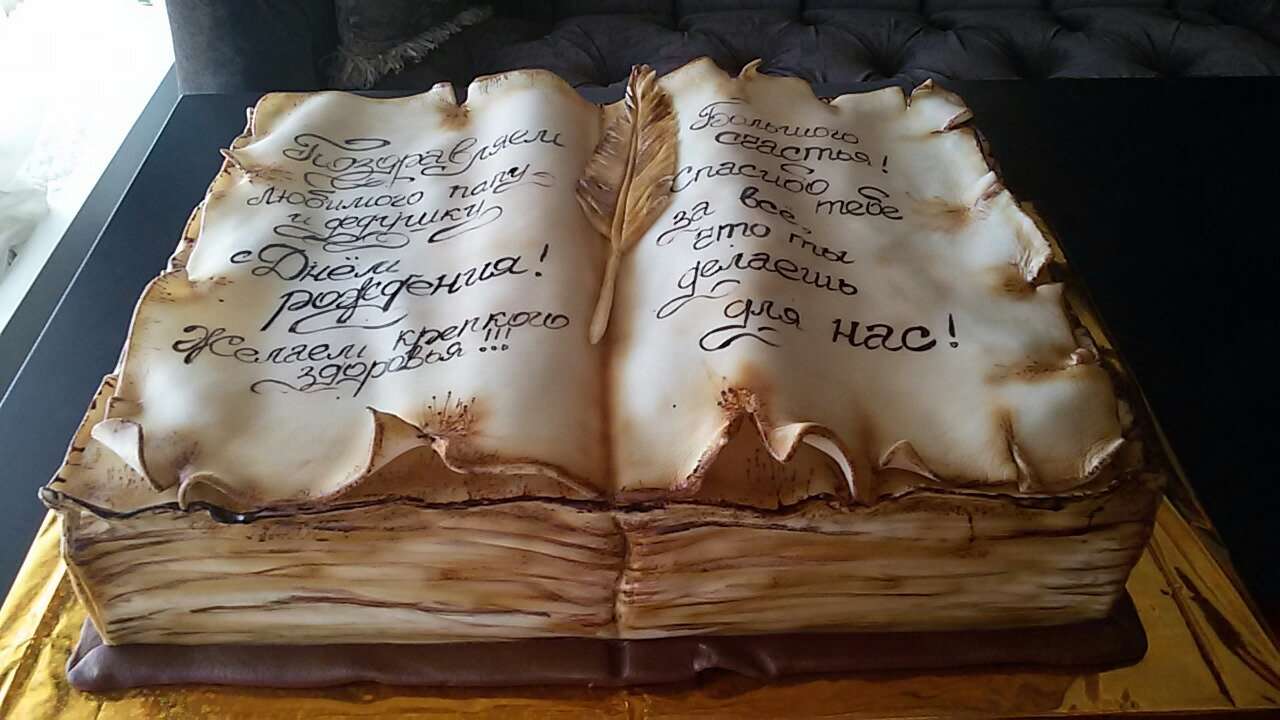 Поздравляем
любимого папу
и дедушку
с Днём
рождения!
Желаем крепкого
здоровья!!!
Большого
счастья!
Спасибо тебе
за всё,
что ты
делаешь
для нас!